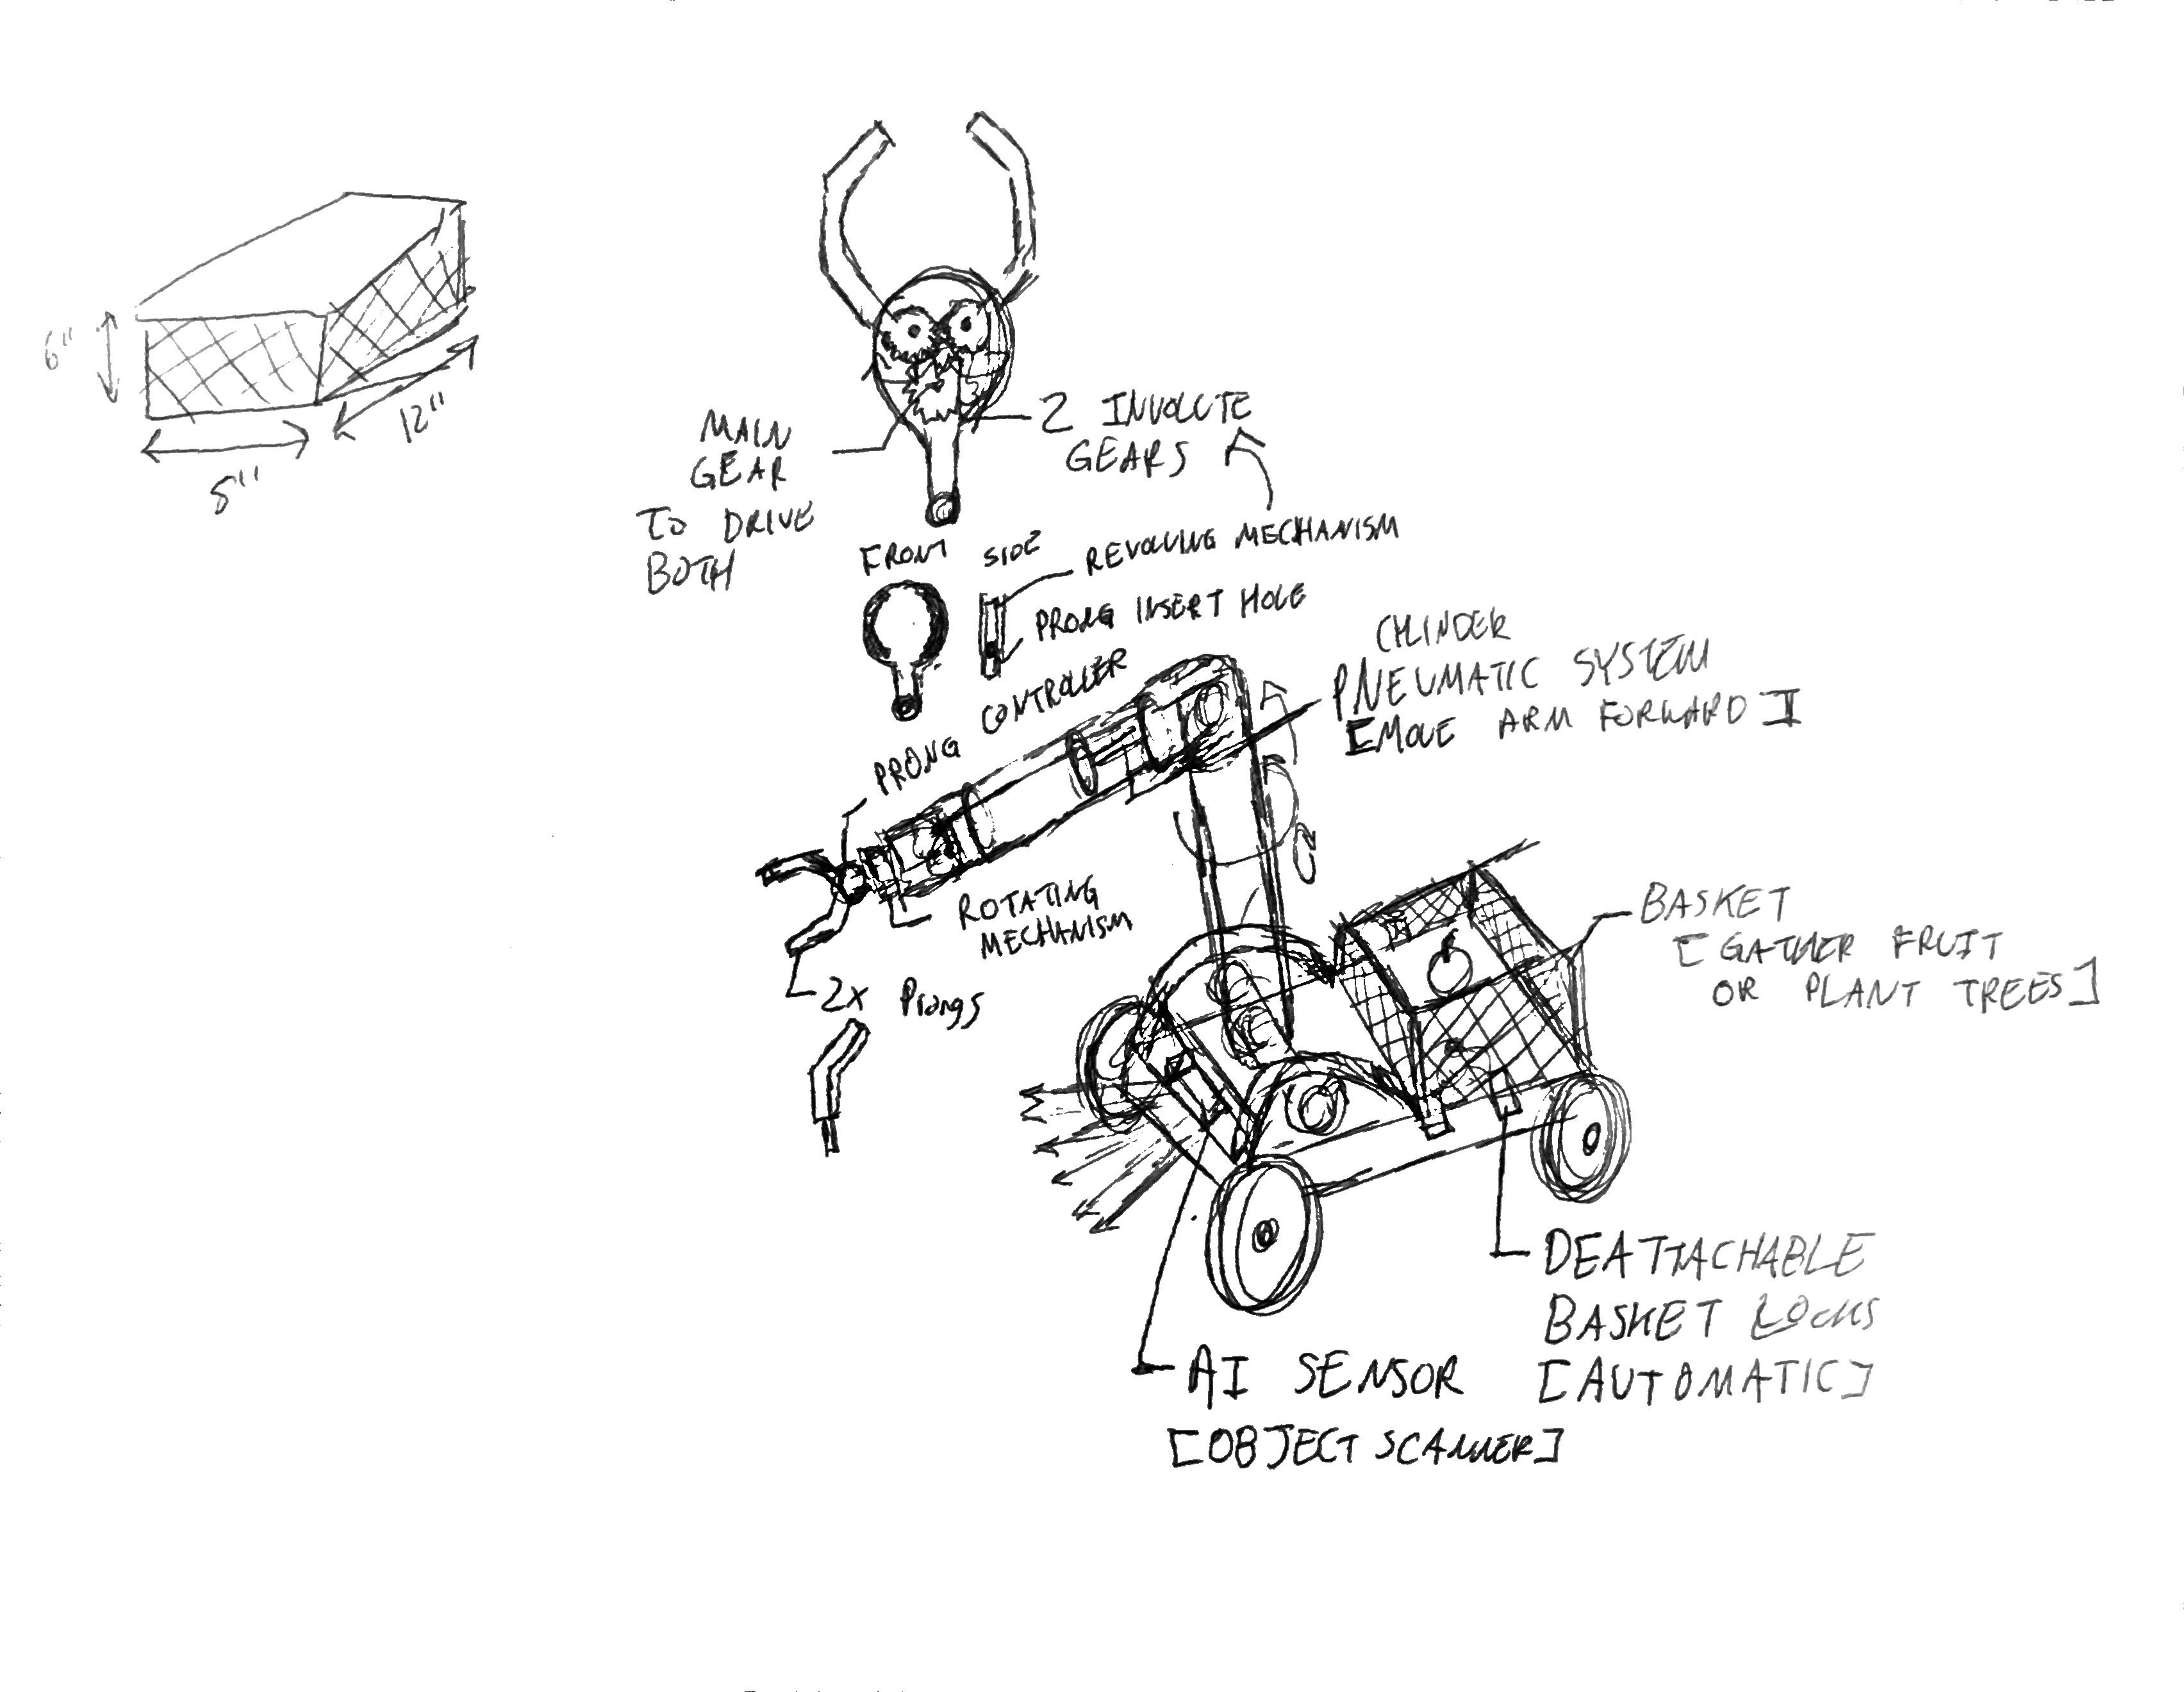 6"
12"
8"
MAIN
GEAR
TO DRIVE
BOTH
2 INVOLUTE
GEARS
FRONT
SIDE
REVOLVING MECHANISM
PRONG INSERT HOLE
PRONG CONTROLLER
CYLINDER
PNEUMATIC SYSTEM
[MOVE ARM FORWARD]
ROTATING
MECHANISM
2x Prongs
BASKET
[GATHER FRUIT
OR PLANT TREES]
DEATTACHABLE
BASKET LOCKS
[AUTOMATIC]
AI SENSOR
[OBJECT SCANNER]